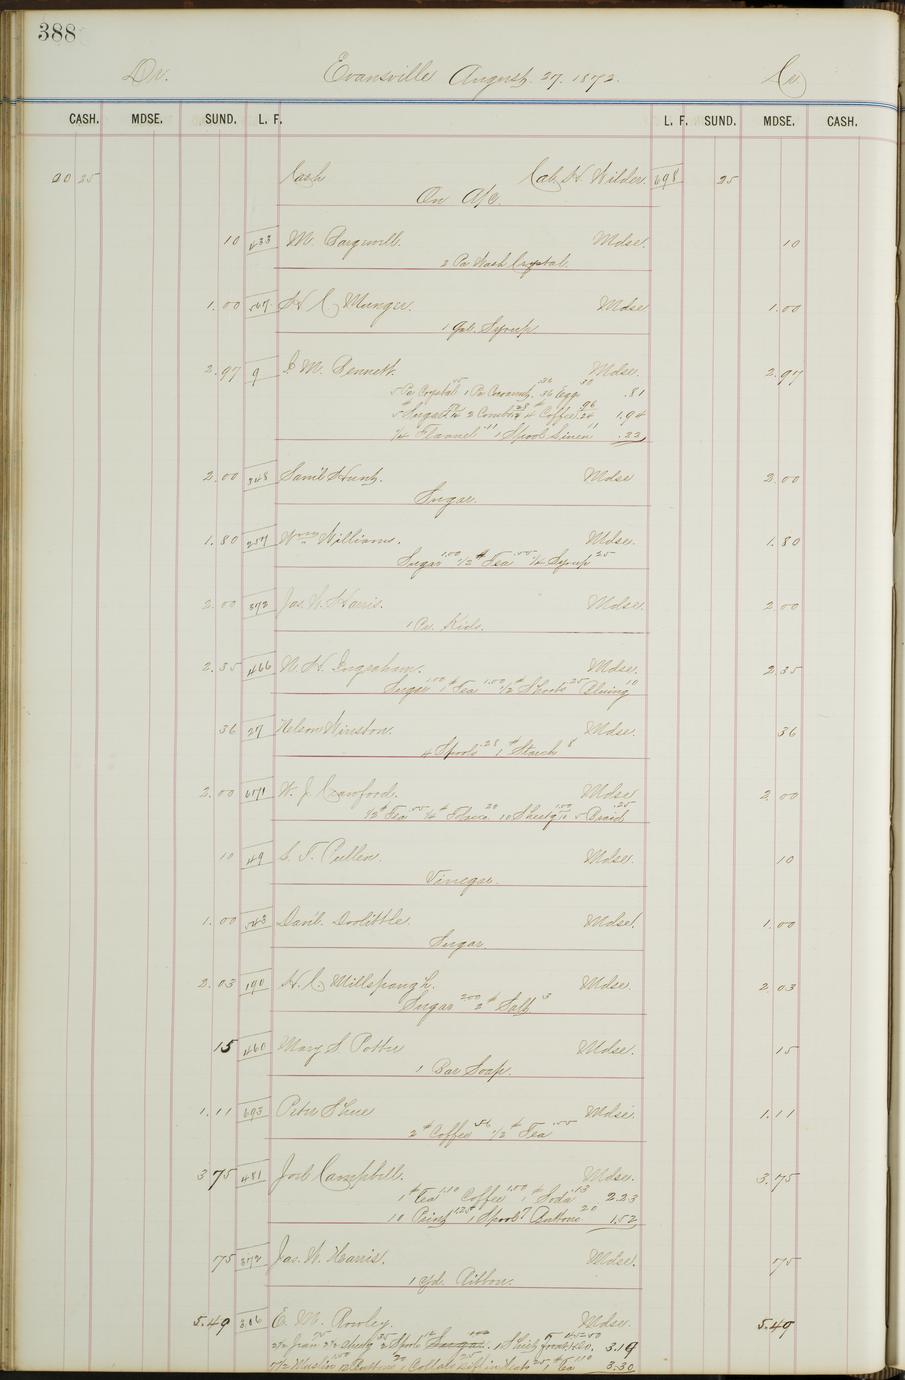 388
Dr. Evansville August. 27. 1872. Cr
CASH. MDSE. SUND. L. F. L. F. SUND. MDSE. CASH.
20 25 Cash Cal. H. Wilder. 698 25
On A/c.
10 433 M. Mdse. 10
2 Pa Wash Crystal.
1.00 567 H C Munger. Mdse 1.00
1 Gal. Syrup
2.97 9 M. Bennett. Mdse. 2.97
5 Pa Crystal 1 Pa 36 Eggs 30 .81
Sugar 2 Combs 28 4 # Coffee 96 1.94
1/4 Flannel 11 1 Spool Linen 11 .22
2.00 348 Saml Hunt. Mdse 2.00
Sugar.
1.80 257 Wm Williams. Mdse. 1.80
Sugar 1.00 1/2 # Tea .55 1/4 Syrup 25
2.00 372 Jas. W. Harris. Mdse. 2.00
1 Pr. Kids.
2.35 466 N. H. Ingraham. Mdse. 2.35
Sugar 1.00 1 # Tea 1.00 1/2 # 25 Bluing 10
36 27 Nelson Winston. Mdse. 36
4 Spools .28 1 # Starch 8
2.00 671 W. J. Crawford. Mdse 2.00
1/2 # Tea .55 1/4 # 20 10 Sheetg 1.00 5 Braid .25
10 49 T. Pullen. Mdse. 10
Vinegar.
1.00 543 Danl. Doolittle. Mdse. 1.00
Sugar.
2.03 190 H. C. Millspaugh. Mdse. 2.03
Sugar 2.00 2 # Salt 3
15 460 Mary S Potter Mdse. 15
1 Bar Soap.
1.11 693 Peter Shue Mdse 1.11
2 # Coffee .56 1/2 # Tea .55
3 75 481 Joel Campbell. Mdse. 3.75
1 # Tea 1.10 Coffee 1.00 1 # Soda .13 2.23
10 Print 1.25 1 Spool 7 Buttons 20 1.52
75 372 Jas. W. Harris. Mdse. 75
1 yd. Ribbon.
5.49 306 E. M. Rowley. Mdse. 5.49
2 Spools 1 Shirt front 3.19
7 1/2 Muslin 12 Buttons 20 Collar 25 1 Tea 1.10 3.30